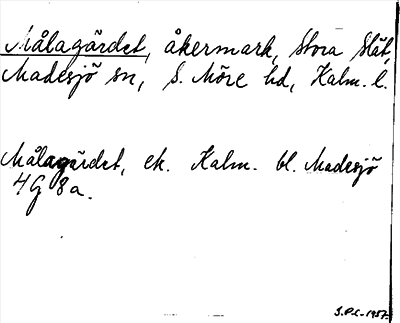 Målagärdet, åkermark, Stora Slät,
Madesjö sn, S. Möre hd, Kalm. l.
Målagärdet, ek. Kalm. bl. Madesjö
4G 8a.
S.P.L. 1957